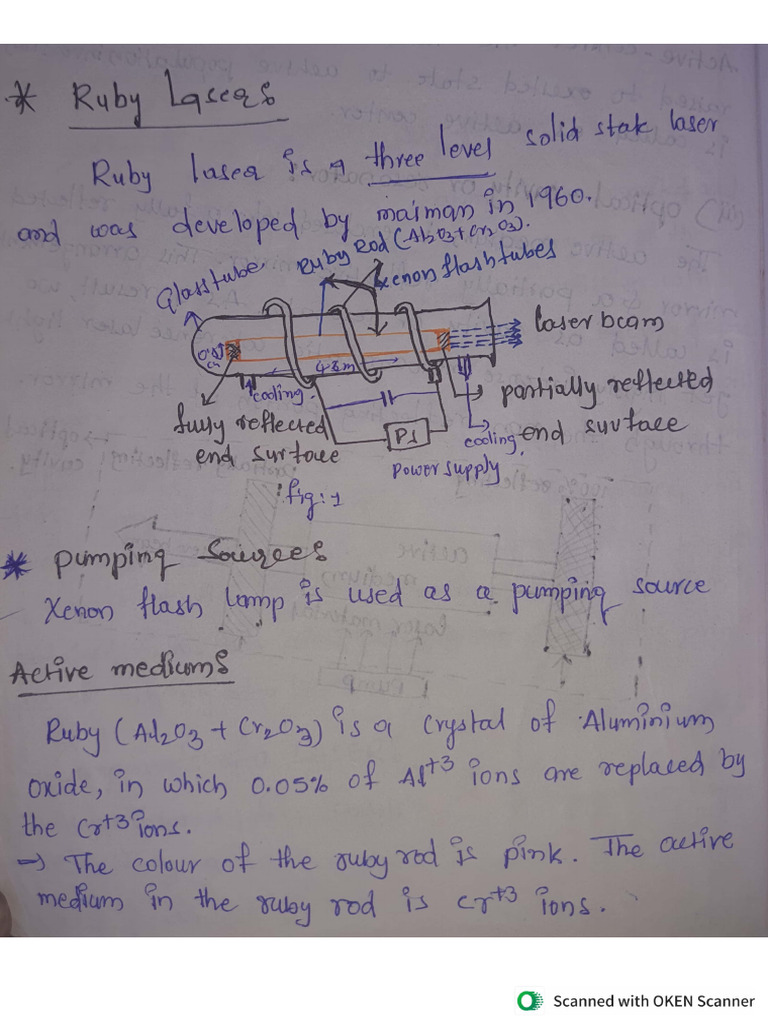 * Ruby Lasers
Ruby laser is a three level solid stak laser
and was developed by maiman in 1960.
Ruby Rod (Al2O3+Cr2O3).
Glass tube
xenon flash tubes
laser beam
4.8m
cooling.
partially reflected
end surface
fully reflected
end surface
PS
cooling
power supply
fig:1
* pumping Sources
Xenon flash lamp is used as a pumping source
Active mediums
Ruby (Al2O3 + Cr2O3) is a crystal of Aluminium
oxide, in which 0.05% of Al+3 ions are replaced by
the Cr+3 ions.
→ The colour of the ruby rod is pink. The active
medium in the ruby rod is Cr+3 ions.
Scanned with OKEN Scanner